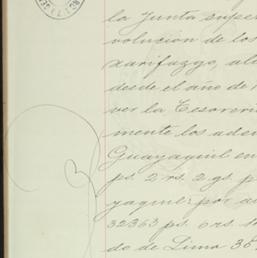 la Junta super
volucion de los
xarifazgo, al
desde el año de
ver la Tesoreri
mente los ade
Guayaquil en
ps. 2 rs. 2 gs. p
yaquil: por a
32363 ps. 6 rs.
do de Lima 36